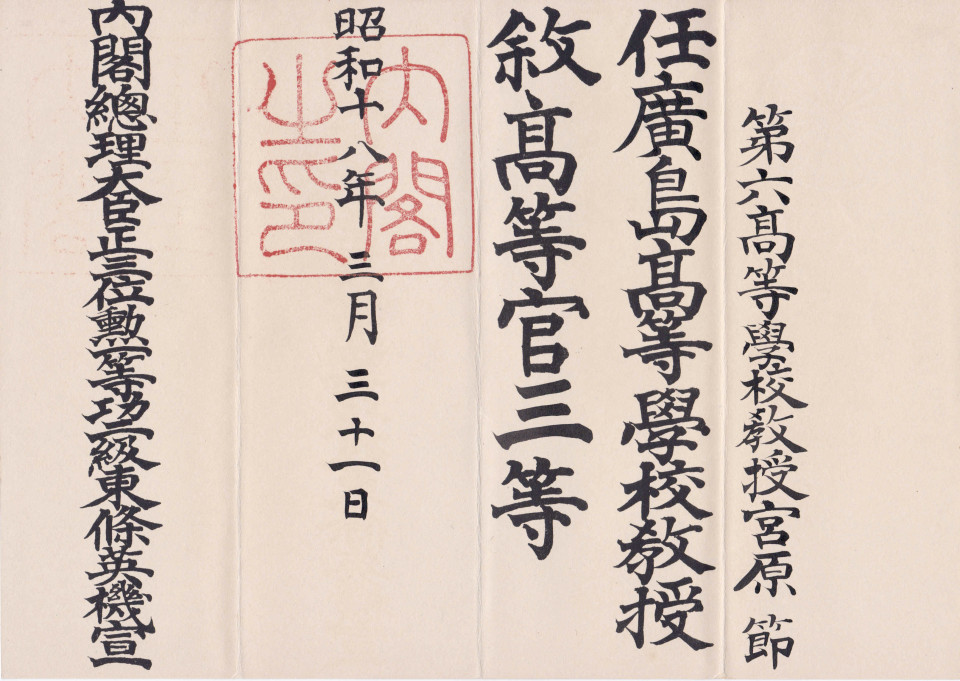 第六髙等學校敎授宮原節
任廣島髙等學校敎授
敘髙等官三等
昭和十八年三月三十一日
內閣之印
內閣總理大臣正三位勳一等功二級東條英機宣